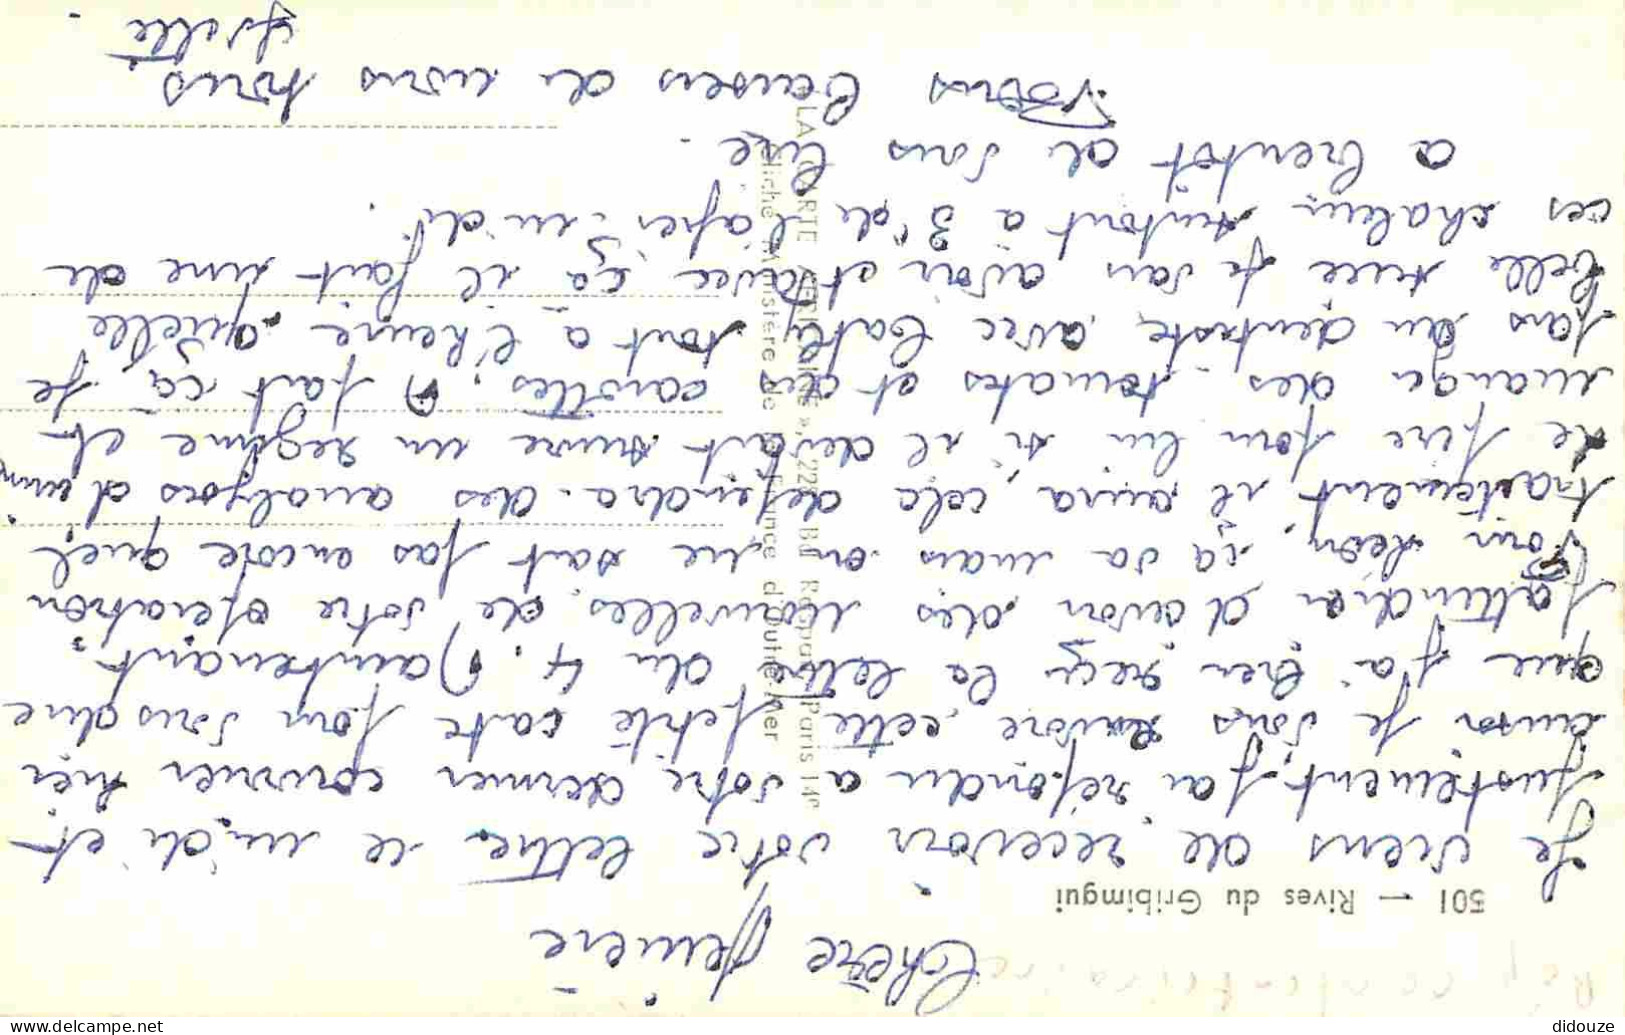 Chère Yeniere
Je viens de recevoir votre lettre ce midi et
justement j'ai répondu a votre dernier courrier hier
aussi je vous envoie cette petite carte pour vous dire
que j'ai bien reçu la lettre du 4. Maintenant
j'attendrai d'avoir des nouvelles de votre opération
Pour Leon, ça va mais on ne sait pas encore quel
traitement il aura, cela dépendra des analyses d'urine
de père pour lui si, il devait suivre un régime et
manger des tomates et des carottes. A part ça je
pars au dentiste avec Cathy tout a l'heure quelle
belle suee je vais avoir et avec ça il fait une de
ces chaleur surtout a 3h de l'après-midi.
a bientôt de vous lire.
Bons baisers de nous tous
Yvette
501 — Rives du Gribimgui
« LA CARTE AFRICAINE », 222, Bd Raspail, Paris 14e
Cliché Ministère de la France d'Outre-Mer
Rép. centrafricaine
didouze